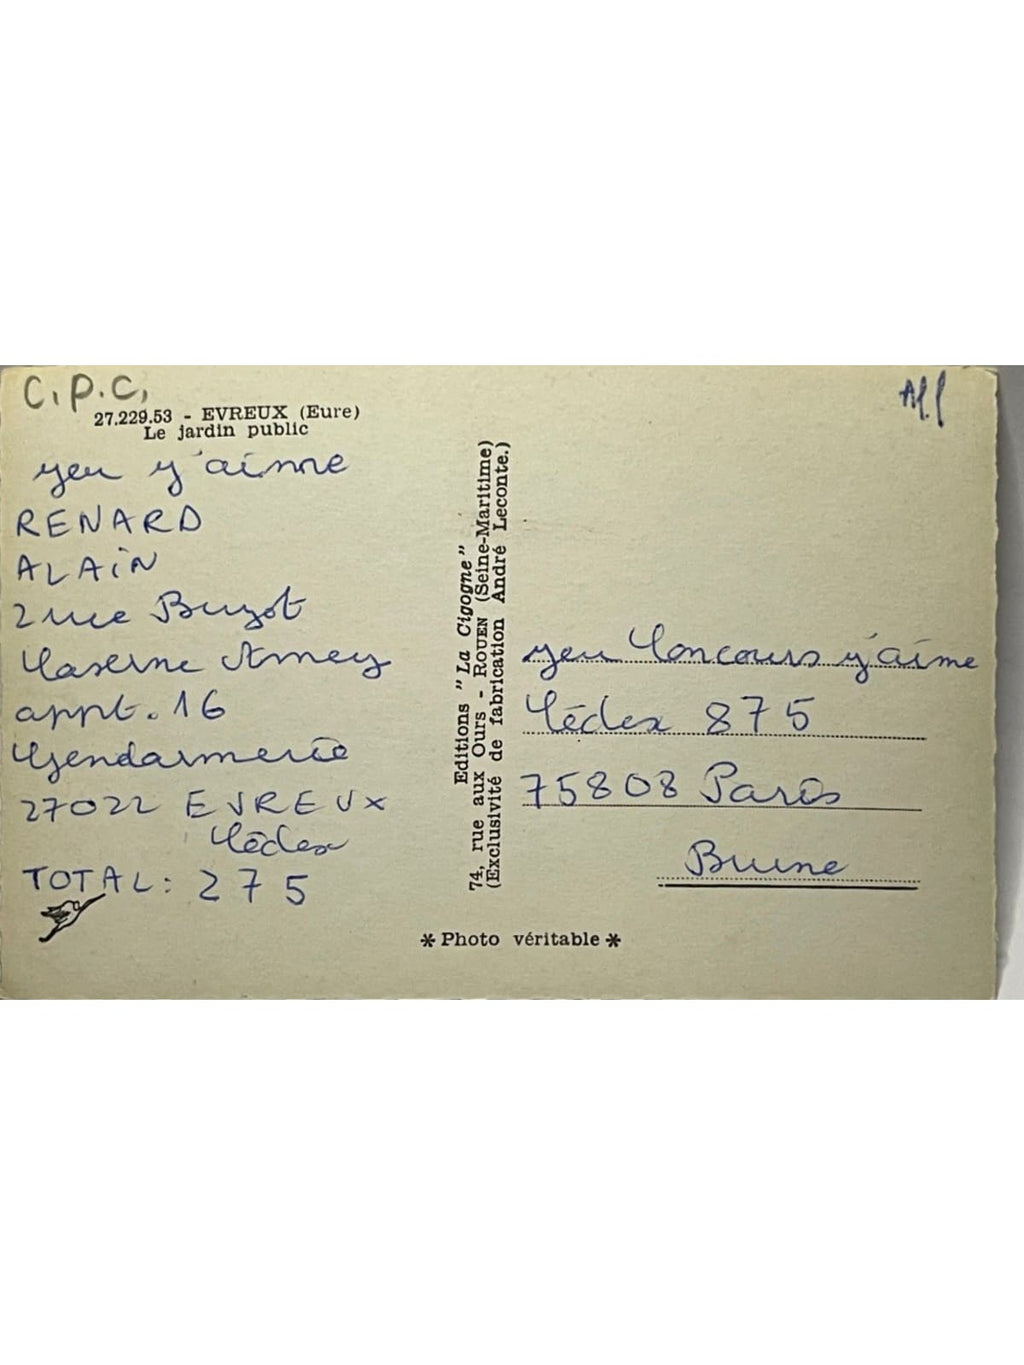 C.P.C.
27.229.53 - EVREUX (Eure)
Le jardin public
jeu j'aime
RENARD
ALAIN
2 rue Buzot
Caserne Amey
appt. 16
Gendarmerie
27022 EVREUX
Cédex
TOTAL: 275
Editions "La Cigogne"
74, rue aux Ours - ROUEN (Seine-Maritime)
(Exclusivité de fabrication André Leconte.)
jeu Concours j'aime
Cédex 875
75808 Paris
Brune
* Photo véritable *